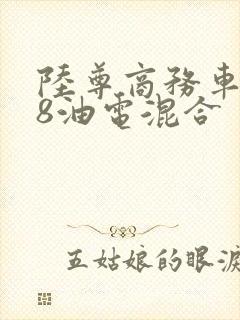 陸尊商務車
8油電混合
五姑娘的眼淚